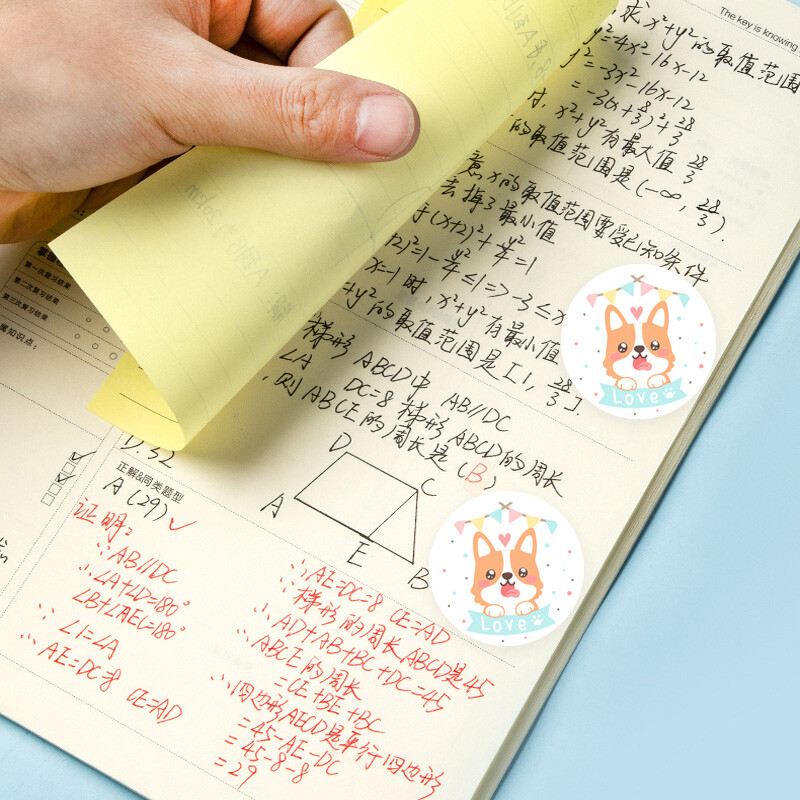 The key is knowing
求x²+y²的取值范围
y²=4x²-16x-12
y²=-3x²-16x-12
=-3(x+8/3)²+28/3
时,x²+y²有最大值28/3
的取值范围是(-∞,28/3).
意x的取值范围要受已知条件
去掉了最小值
(x+2)²+y²/4=1
+2)²=1-y²/4≤1=>-3≤x
x=-1时,x²+y²有最小值
+y²的取值范围是[1,28/3].
梯形ABCD中 AB//DC
∠A DC=8 梯形ABCD的周长
,则ABCE的周长是(B)
第一次复习结果
第二次复习结果
第三次复习结果
属知识点:
D.32
正解&同类题型
A(29)✓
D
C
A
E
B
证明:
∵AB//DC
∴∠A+∠D=180°
∠B+∠AEC=180°
∵∠1=∠A
∴AE=DC=8 CE=AD
∴AE=DC=8 CE=AD
∵梯形的周长ABCD是45
∴AD+AB+BC+DC=45
∴ABCE的周长
=CE+BE+BC
∴四边形AECD是平行四边形
=45-AE-DC
=45-8-8
=29
Love
Love